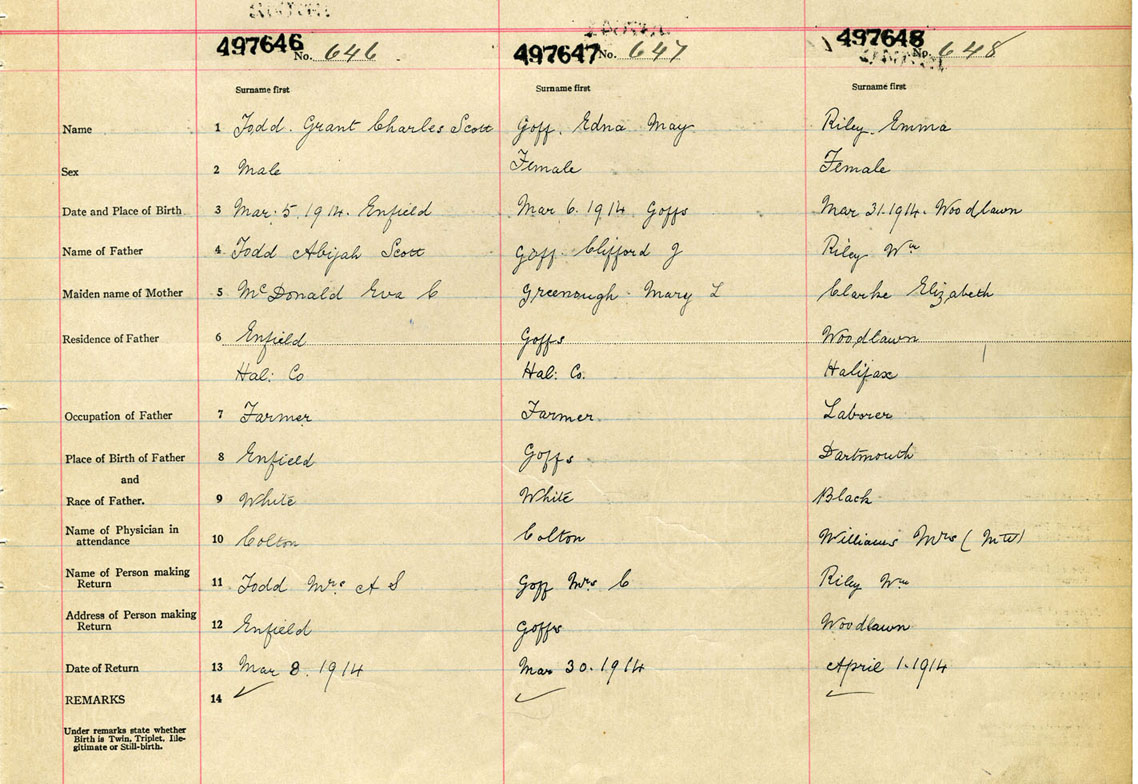 497646 No. 646 497647 No. 647 497648 No. 648
Surname first Surname first Surname first
Name 1 Todd. Grant Charles Scott Goff. Edna May Riley. Emma
Sex 2 Male Female Female
Date and Place of Birth 3 Mar. 5. 1914. Enfield Mar 6. 1914 Goffs Mar 31. 1914. Woodlawn
Name of Father 4 Todd Abijah Scott Goff Clifford J Riley Wm
Maiden name of Mother 5 McDonald Eva C Greenough Mary L Clarke Elizabeth
Residence of Father 6 Enfield Goffs Woodlawn
Hal: Co Hal: Co. Halifax
Occupation of Father 7 Farmer Farmer. Laborer
Place of Birth of Father 8 Enfield Goffs Dartmouth
and
Race of Father. 9 White White Black
Name of Physician in
attendance 10 Colton Colton Williams Mrs (MW)
Name of Person making
Return 11 Todd Mrs A S Goff Mrs C Riley Wm
Address of Person making
Return 12 Enfield Goffs Woodlawn
Date of Return 13 Mar 8. 1914 Mar 30. 1914 April 1. 1914
REMARKS 14
Under remarks state whether
Birth is Twin, Triplet, Ille-
gitimate or Still-birth.